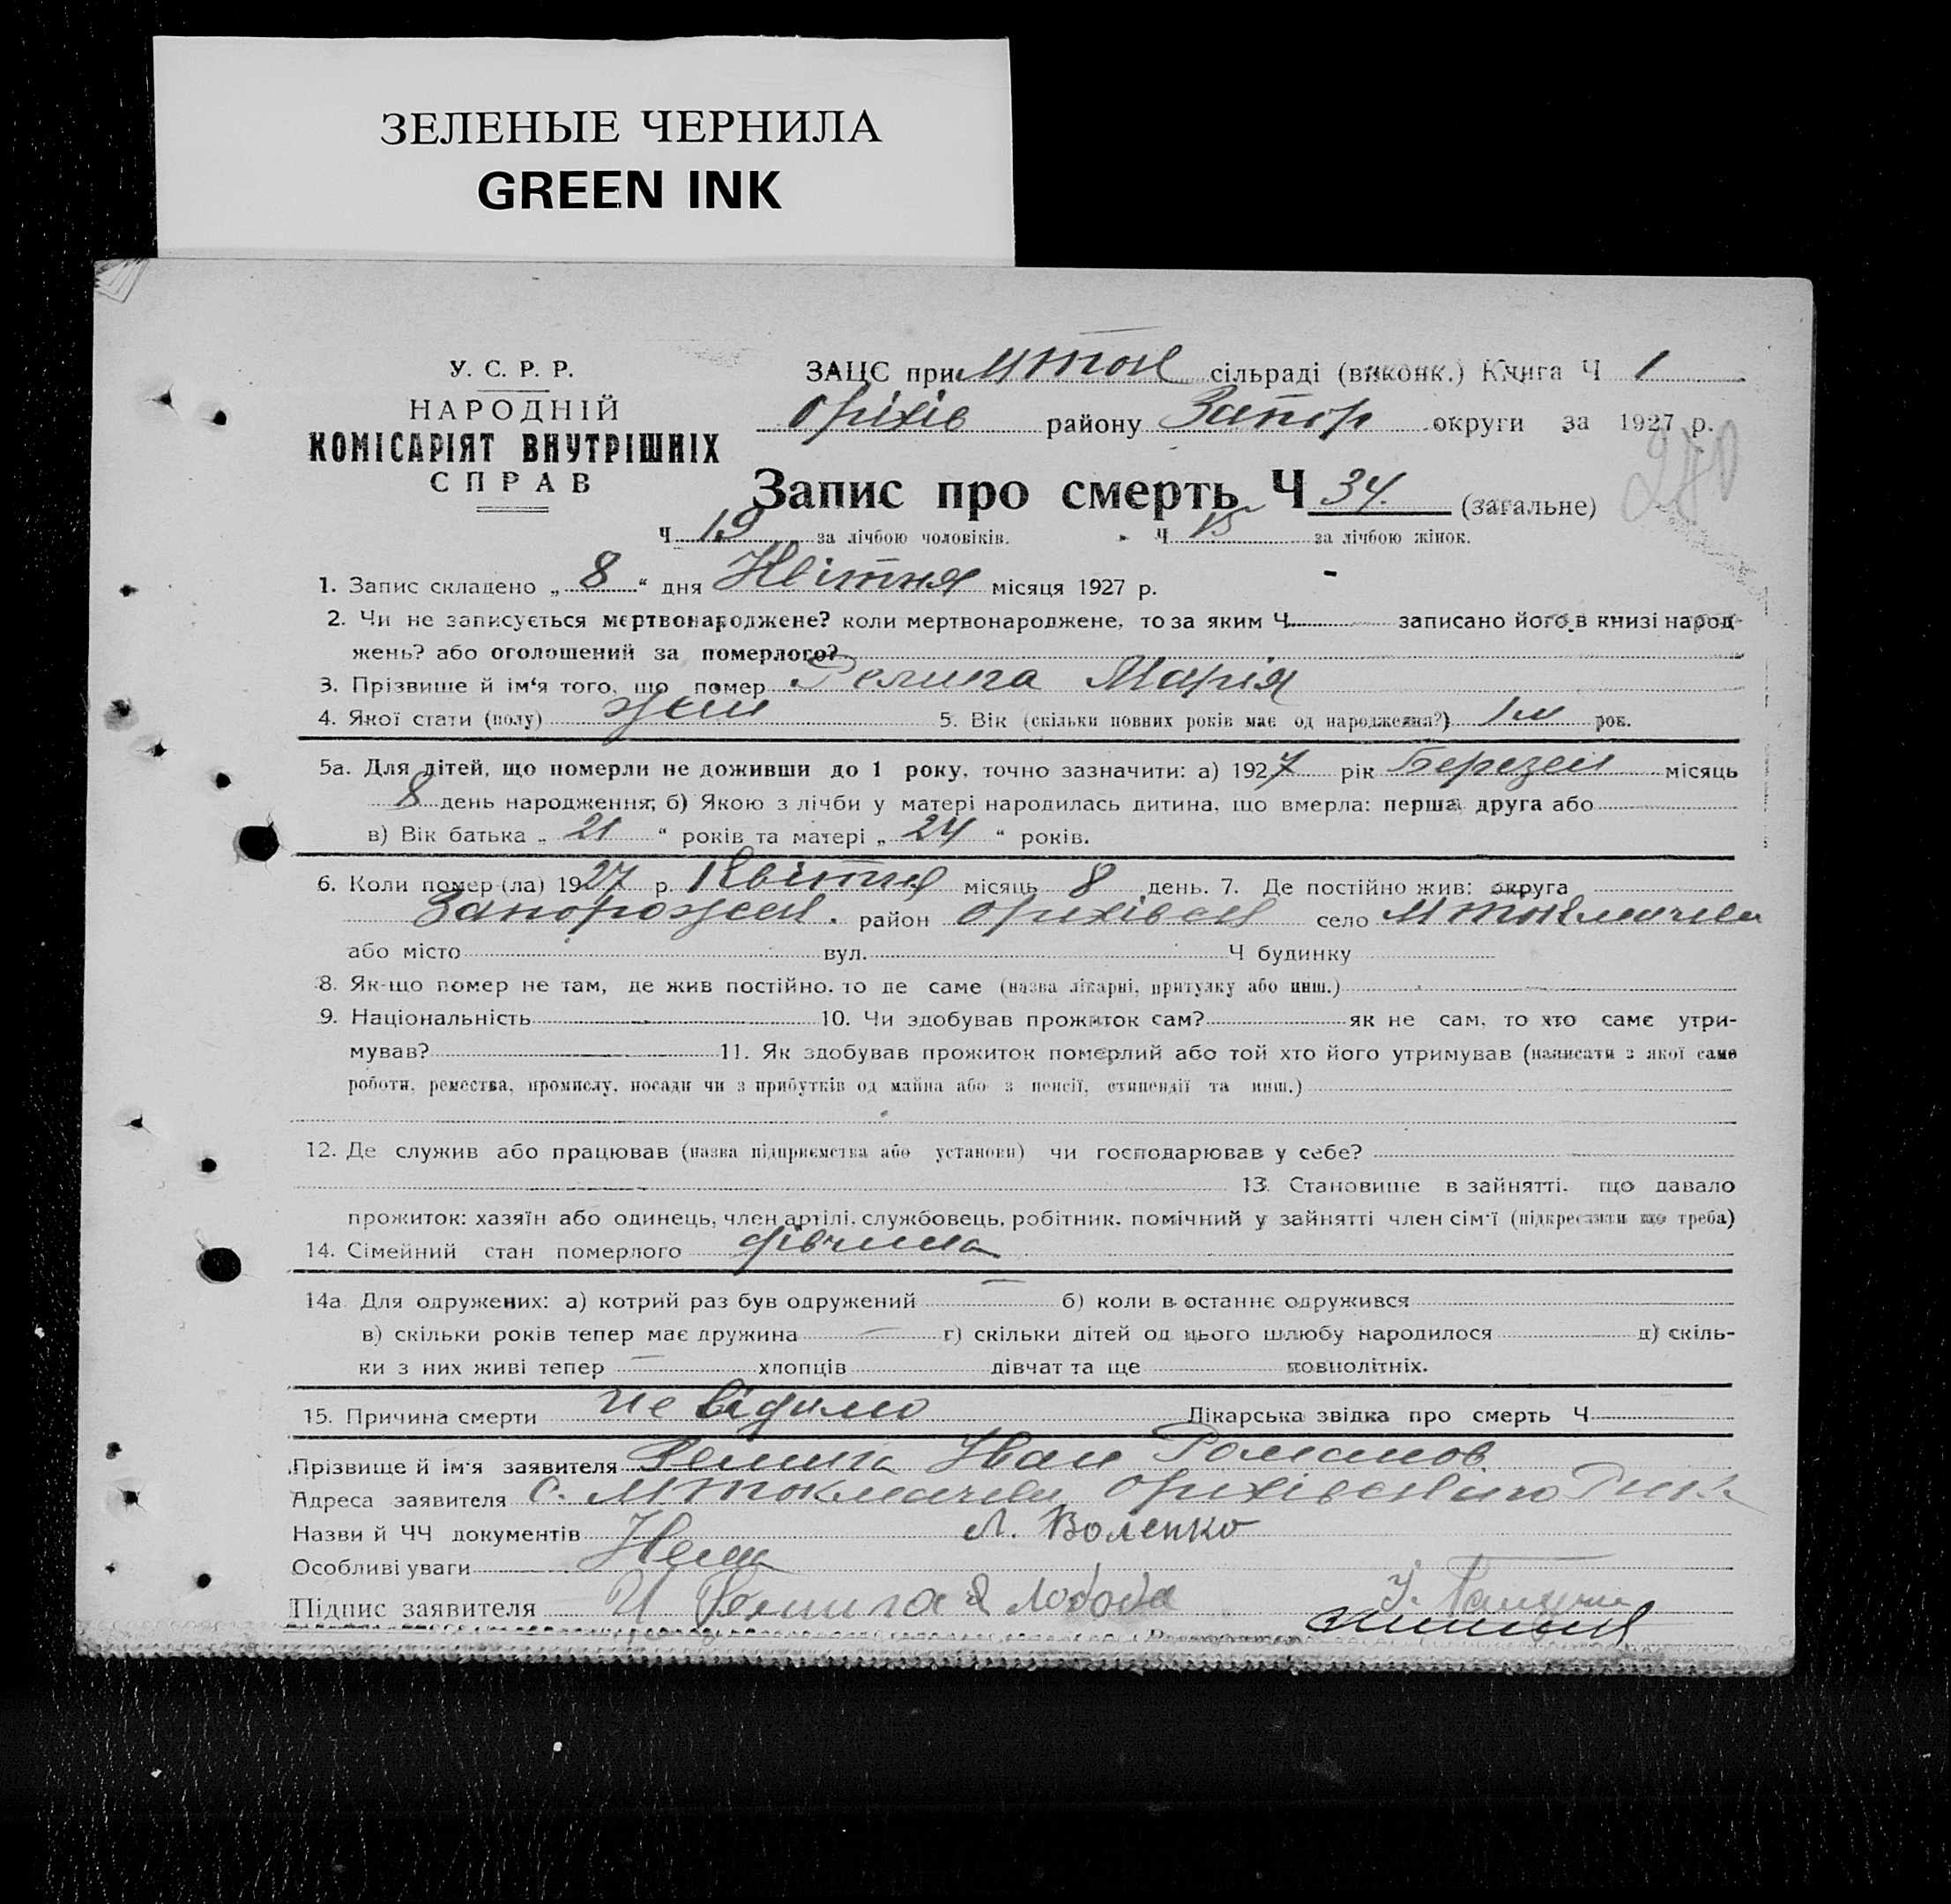 ЗЕЛЕНЫЕ ЧЕРНИЛА
GREEN INK
У. С. Р. Р.
НАРОДНІЙ
КОМІСАРІЯТ ВНУТРІШНІХ
СПРАВ
ЗАЦС при МТок сільраді (виконк.) Книга Ч 1
Оріхів району Запор округи за 1927 р.
280
Запис про смерть Ч 34. (загальне)
Ч 19 за лічбою чоловіків. Ч 15 за лічбою жінок.
1. Запис складено „ 8 “ дня Квітня місяця 1927 р.
2. Чи не записується мертвонароджене? коли мертвонароджене, то за яким Ч записано його в книзі народ-
жень? або оголошений за померлого?
3. Прізвище й ім‘я того, що помер Репига Марія
4. Якої стати (полу) жен 5. Вік (скільки повних років має од народження?) 1 м рок.
5а. Для дітей, що померли не доживши до 1 року, точно зазначити: а) 1927 рік Березен місяць
8 день народження; б) Якою з лічби у матері народилась дитина, що вмерла: перша, друга або
в) Вік батька „ 21 “ років та матері „ 24 “ років.
6. Коли помер (ла) 1927 р. Квітня місяць 8 день. 7. Де постійно жив: округа
Запорожск. район Оріхівск село МТокмачка
або місто вул. Ч будинку
8. Як-що помер не там, де жив постійно, то де саме (назва лікарні, притулку або инш.)
9. Національність 10. Чи здобував прожиток сам? як не сам, то хто саме утри-
мував? 11. Як здобував прожиток померлий або той хто його утримував (написати з якої саме
роботи, ремества, промислу, посади чи з прибутків од майна або з пенсії, стипендії та инш.)
12. Де служив або працював (назва підприємства або установи) чи господарював у себе?
13. Становище в зайнятті, що давало
прожиток: хазяїн або одинець, член артілі, службовець, робітник, помічний у зайнятті член сім‘ї (підкреслити що треба)
14. Сімейний стан померлого дівчина
14а Для одружених: а) котрий раз був одружений б) коли в останнє одружився
в) скільки років тепер має дружина г) скільки дітей од цього шлюбу народилося д) скіль-
ки з них живі тепер хлопців дівчат та ще повнолітніх.
15. Причина смерти Не відомо Лікарська звідка про смерть Ч
Прізвище й ім‘я заявителя Репига Іван Романов
Адреса заявителя с. МТокмачки Оріхівського
Назви й ЧЧ документів Л. Воленко
Особливі уваги Нема
Підпис заявителя И Репига Лобода